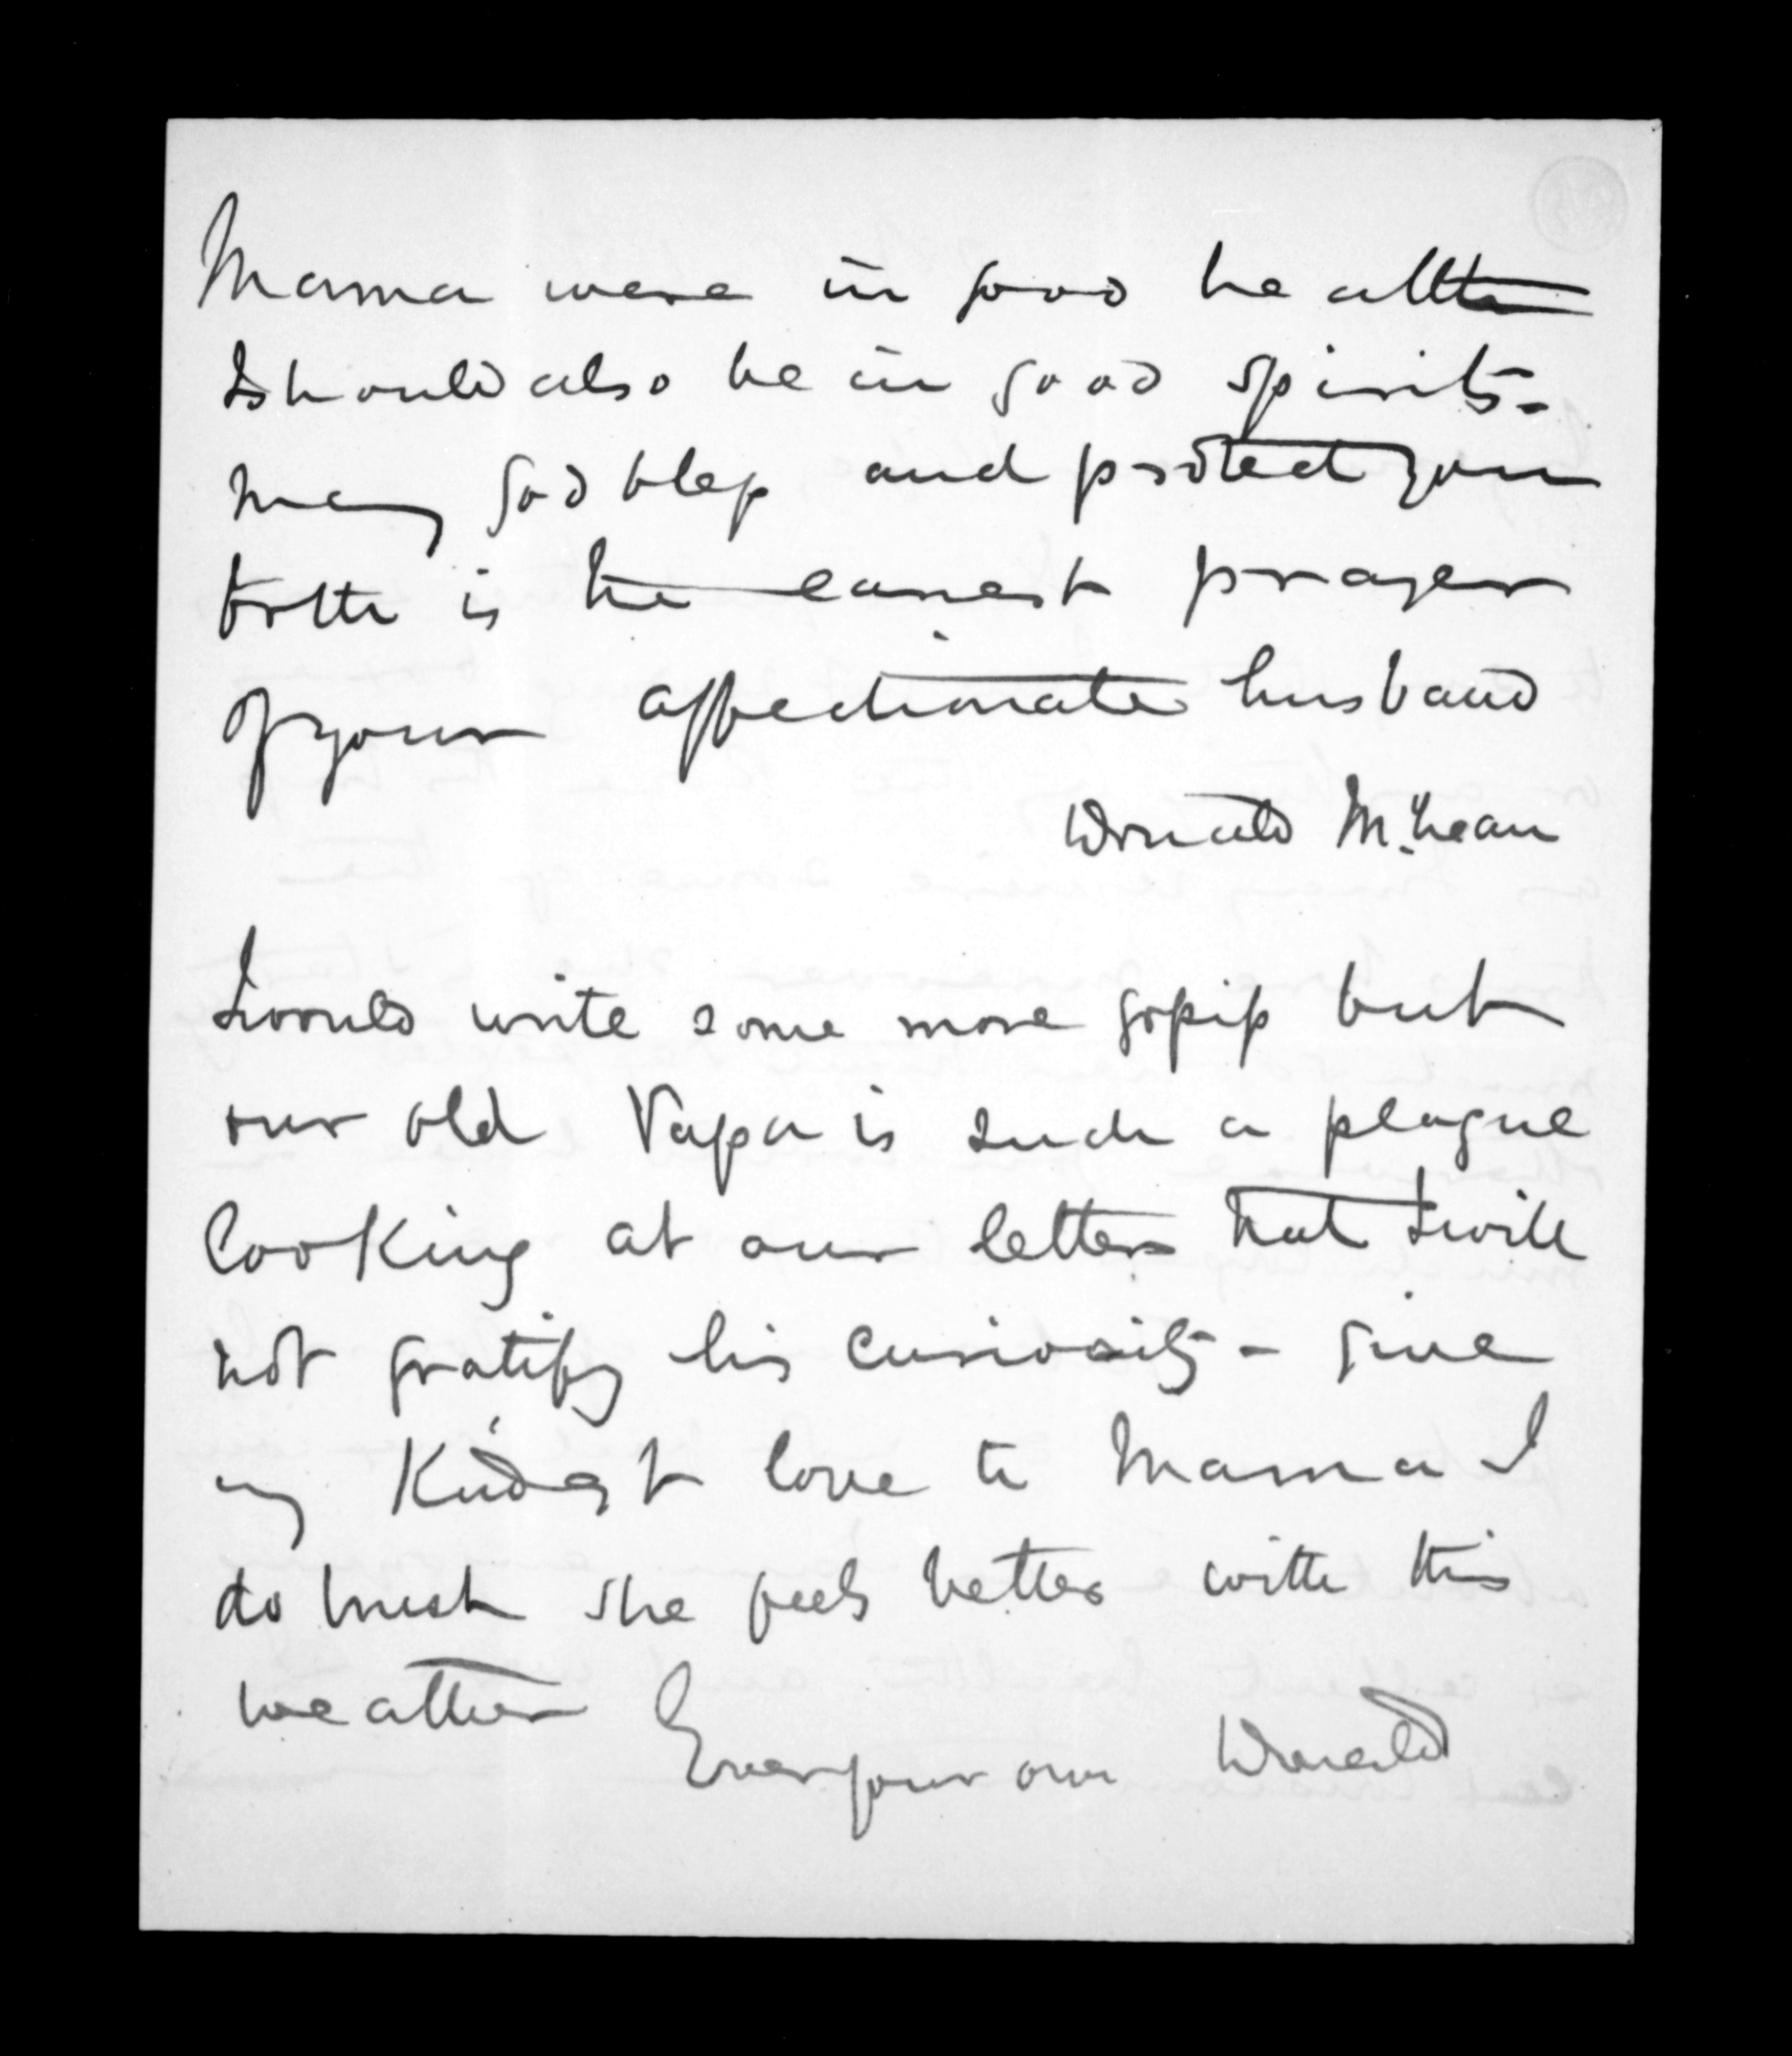 Mama were in good health
I should also be in good spirits -
may God bless and protect you
both is the earnest prayer
of your affectionate husband
Donald McLean
I would write some more gossip but
our old Papa is such a plague
looking at our letters that I will
not gratify his curiosity - give
my kindest love to Mama I
do trust she feels better with this
weather
Ever your own Donald